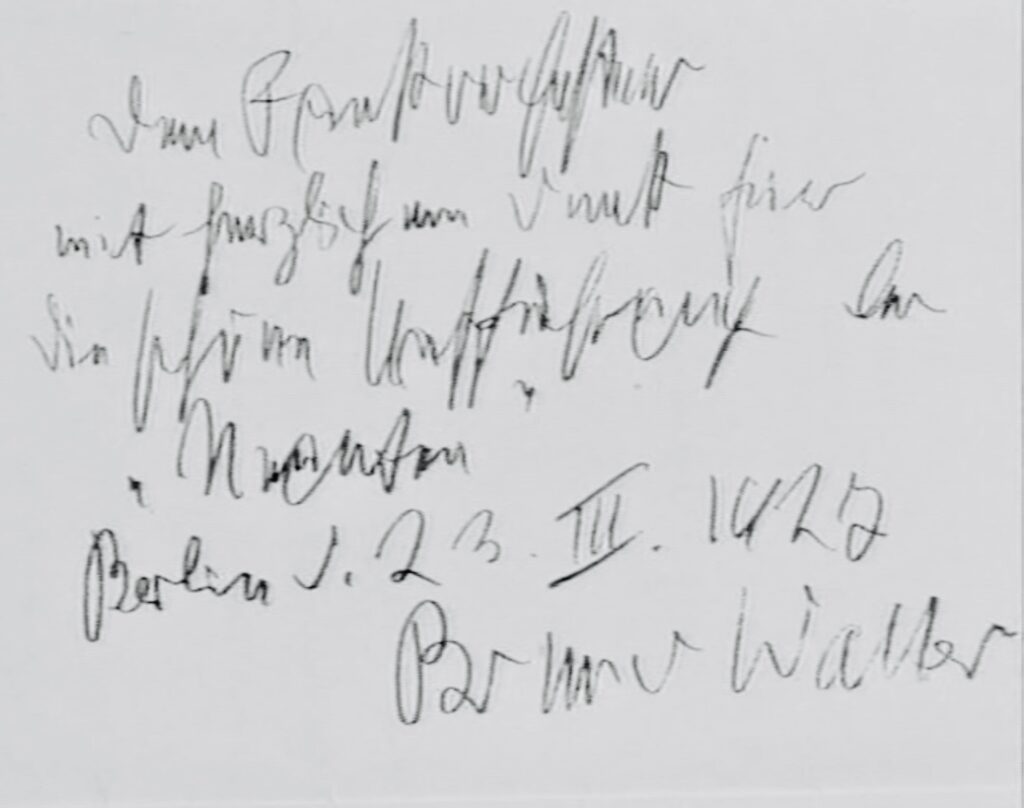 Dem Funkorchester
mit herzlichem Dank für
die schöne Aufführung der
„Neunten"
Berlin d. 23. III. 1927
Bruno Walter